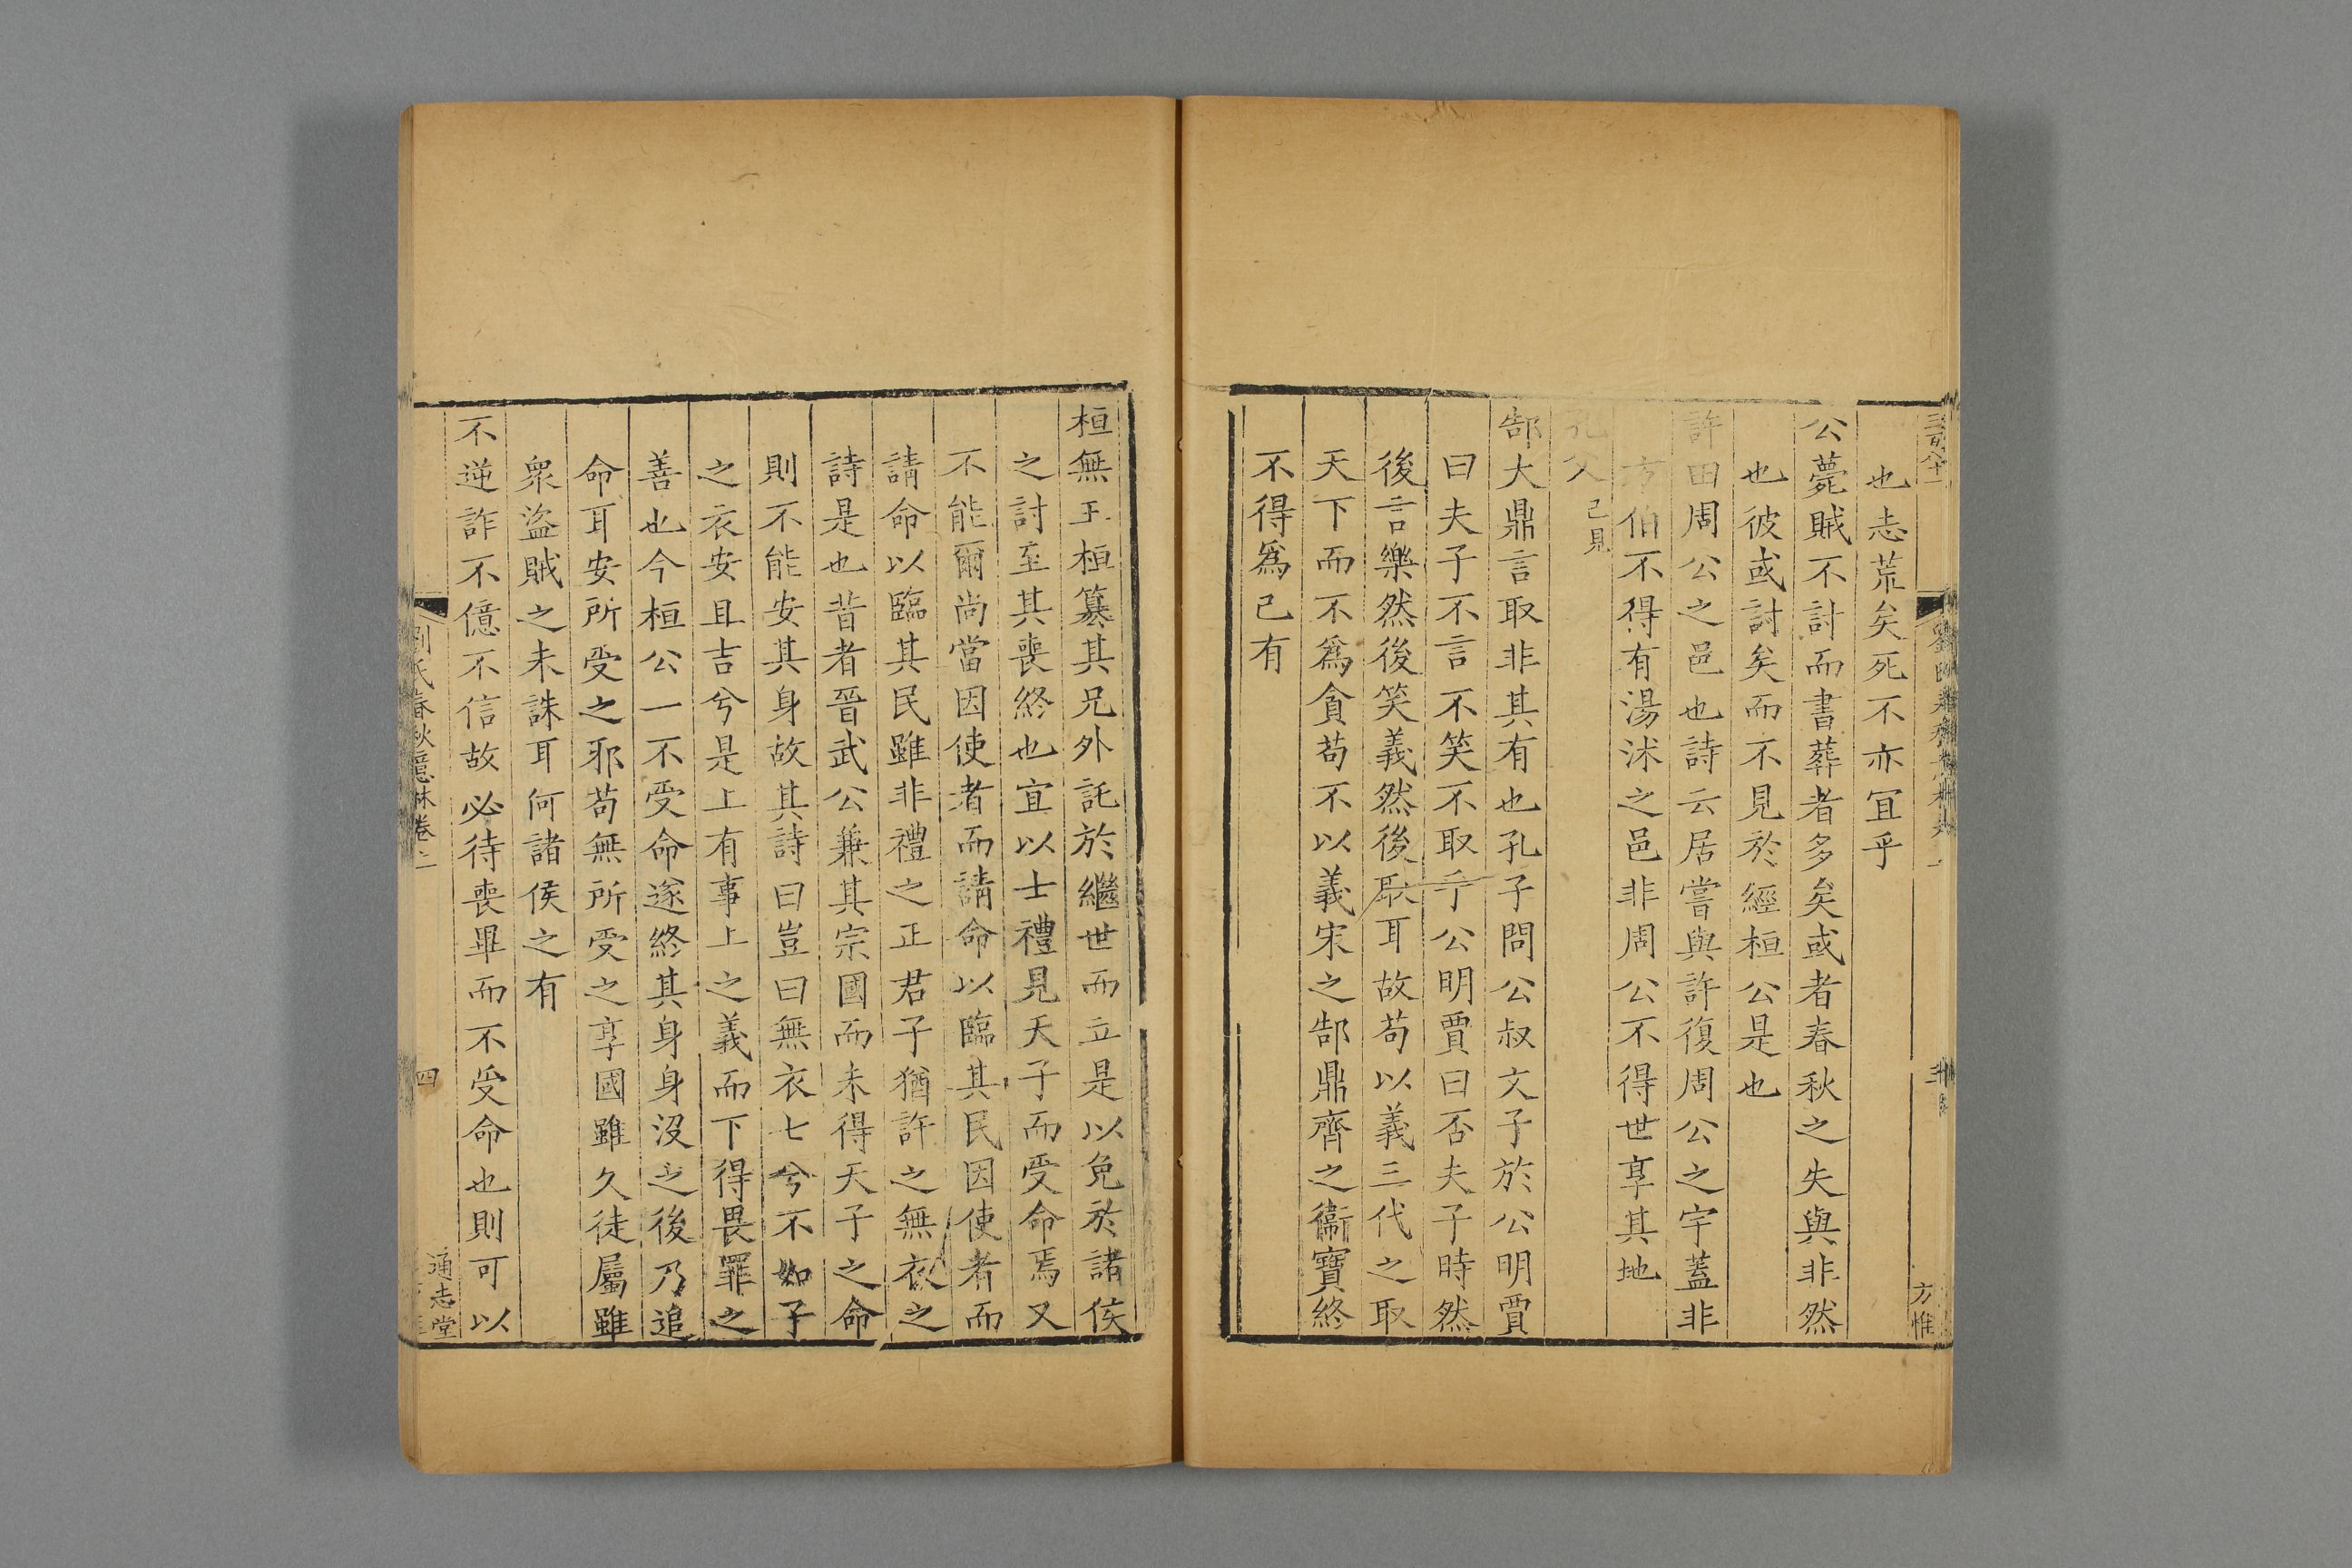 也志荒矣死不亦宜乎
公薨賊不討而書葬者多矣或者春秋之失與非然
也彼或討矣而不見於經桓公是也
許田周公之邑也詩云居嘗與許復周公之宇蓋非
方伯不得有湯沭之邑非周公不得世享其地
孔父已見
郜大鼎言取非其有也孔子問公叔文子於公明賈
曰夫子不言不笑不取乎公明賈曰否夫子時然
後言樂然後笑義然後取耳故苟以義三代之取
天下而不爲貪苟不以義宋之郜鼎齊之衞寶終
不得爲己有
方惟
桓無王桓簒其兄外託於繼世而立是以免於諸侯
之討至其喪終也宜以士禮見天子而受命焉又
不能爾尚當因使者而請命以臨其民因使者而
請命以臨其民雖非禮之正君子猶許之無衣之
詩是也昔者晉武公兼其宗國而未得天子之命
則不能安其身故其詩曰豈曰無衣七兮不如子
之衣安且吉兮是上有事上之義而下得畏罪之
善也今桓公一不受命遂終其身身沒之後乃追
命耳安所受之耶苟無所受之享國雖久徒屬雖
衆盜賊之未誅耳何諸侯之有
不逆詐不億不信故必待喪畢而不受命也則可以
劉氏春秋意林卷上
四
通志堂